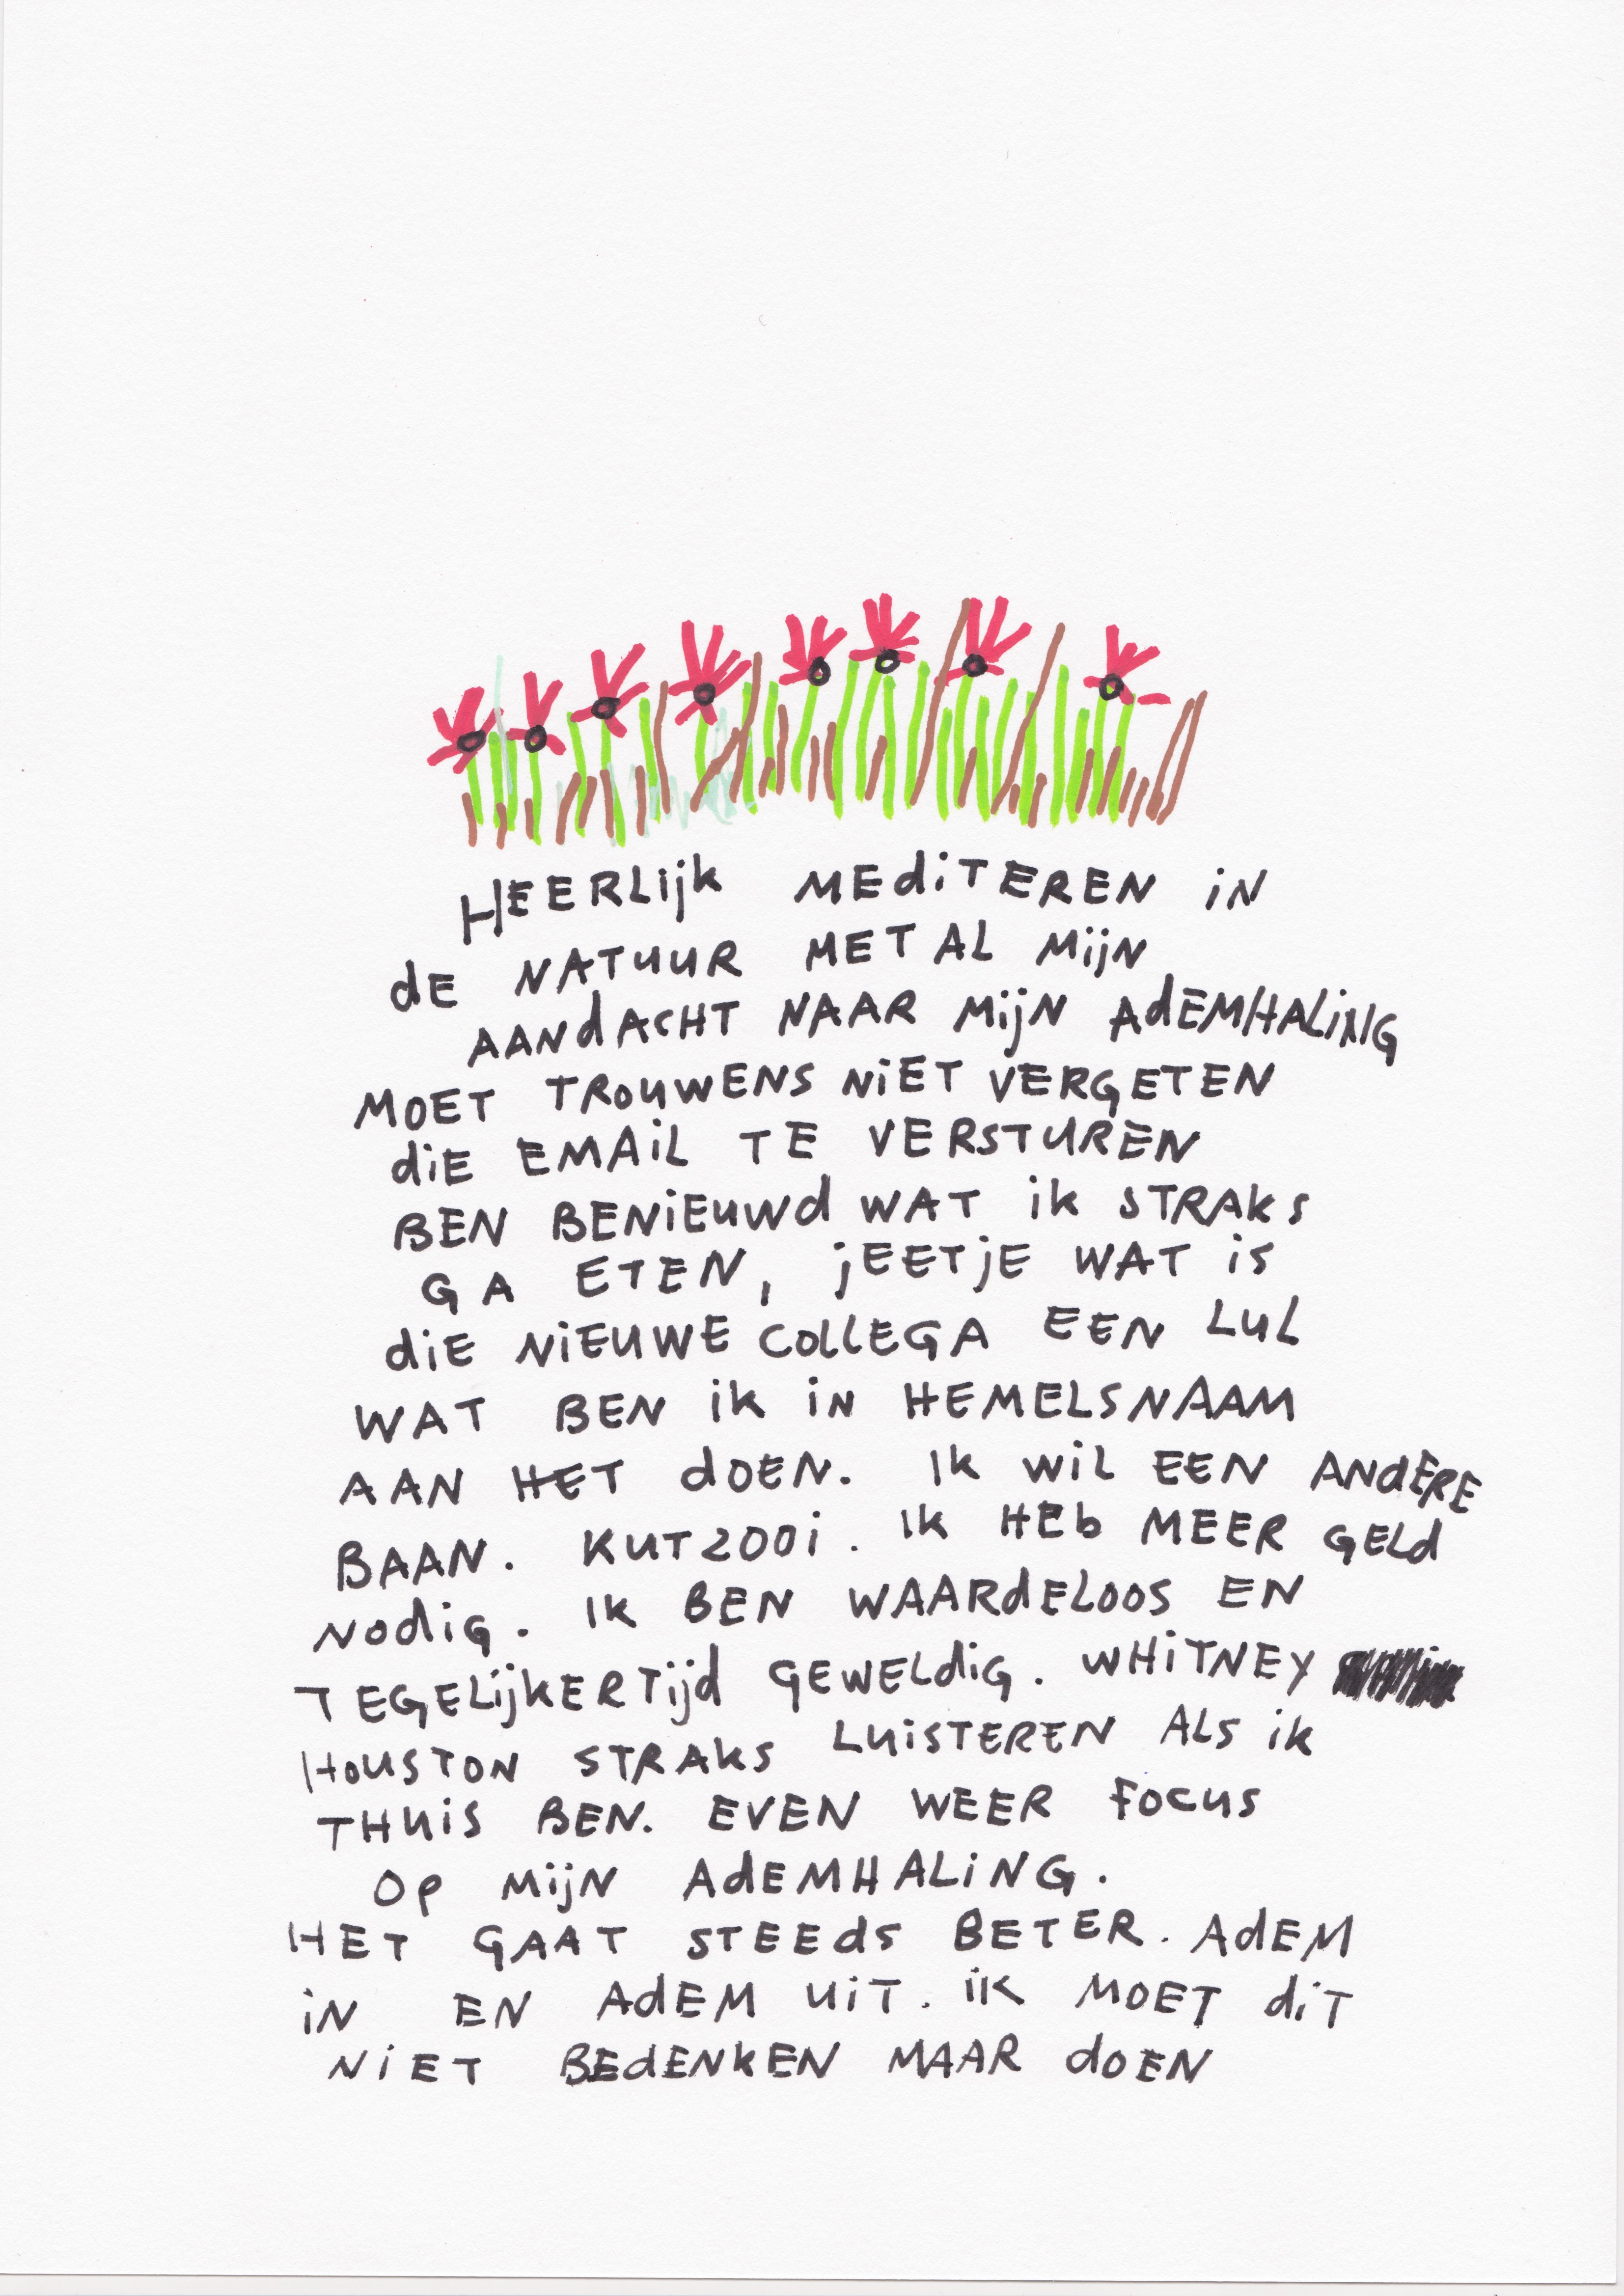 HEERLijk MEdiTEREN iN
dE NATUUR MET AL MijN
AANdACHT NAAR MijN AdEMHALiNG
MOET TROUWENS NiET VERGETEN
diE EMAiL TE VERSTUREN
BEN BENiEUWd WAT ik STRAkS
GA ETEN, jEETjE WAT iS
diE NiEUWE COLLEGA EEN LUL
WAT BEN iK iN HEMELSNAAM
AAN HET dOEN. IK WiL EEN ANdERE
BAAN. KUTZOOi. IK HEb MEER GELd
NOdiG. IK BEN WAARdELOOS EN
TEGELijKERTijd GEWELdiG. WHiTNEY
HOUSTON STRAKS LUiSTEREN ALS iK
THUiS BEN. EVEN WEER FOCUS
OP MijN AdEMHALiNG.
HET GAAT STEEdS BETER. AdEM
iN EN AdEM UiT. iK MOET diT
NiET BEdENKEN MAAR dOEN